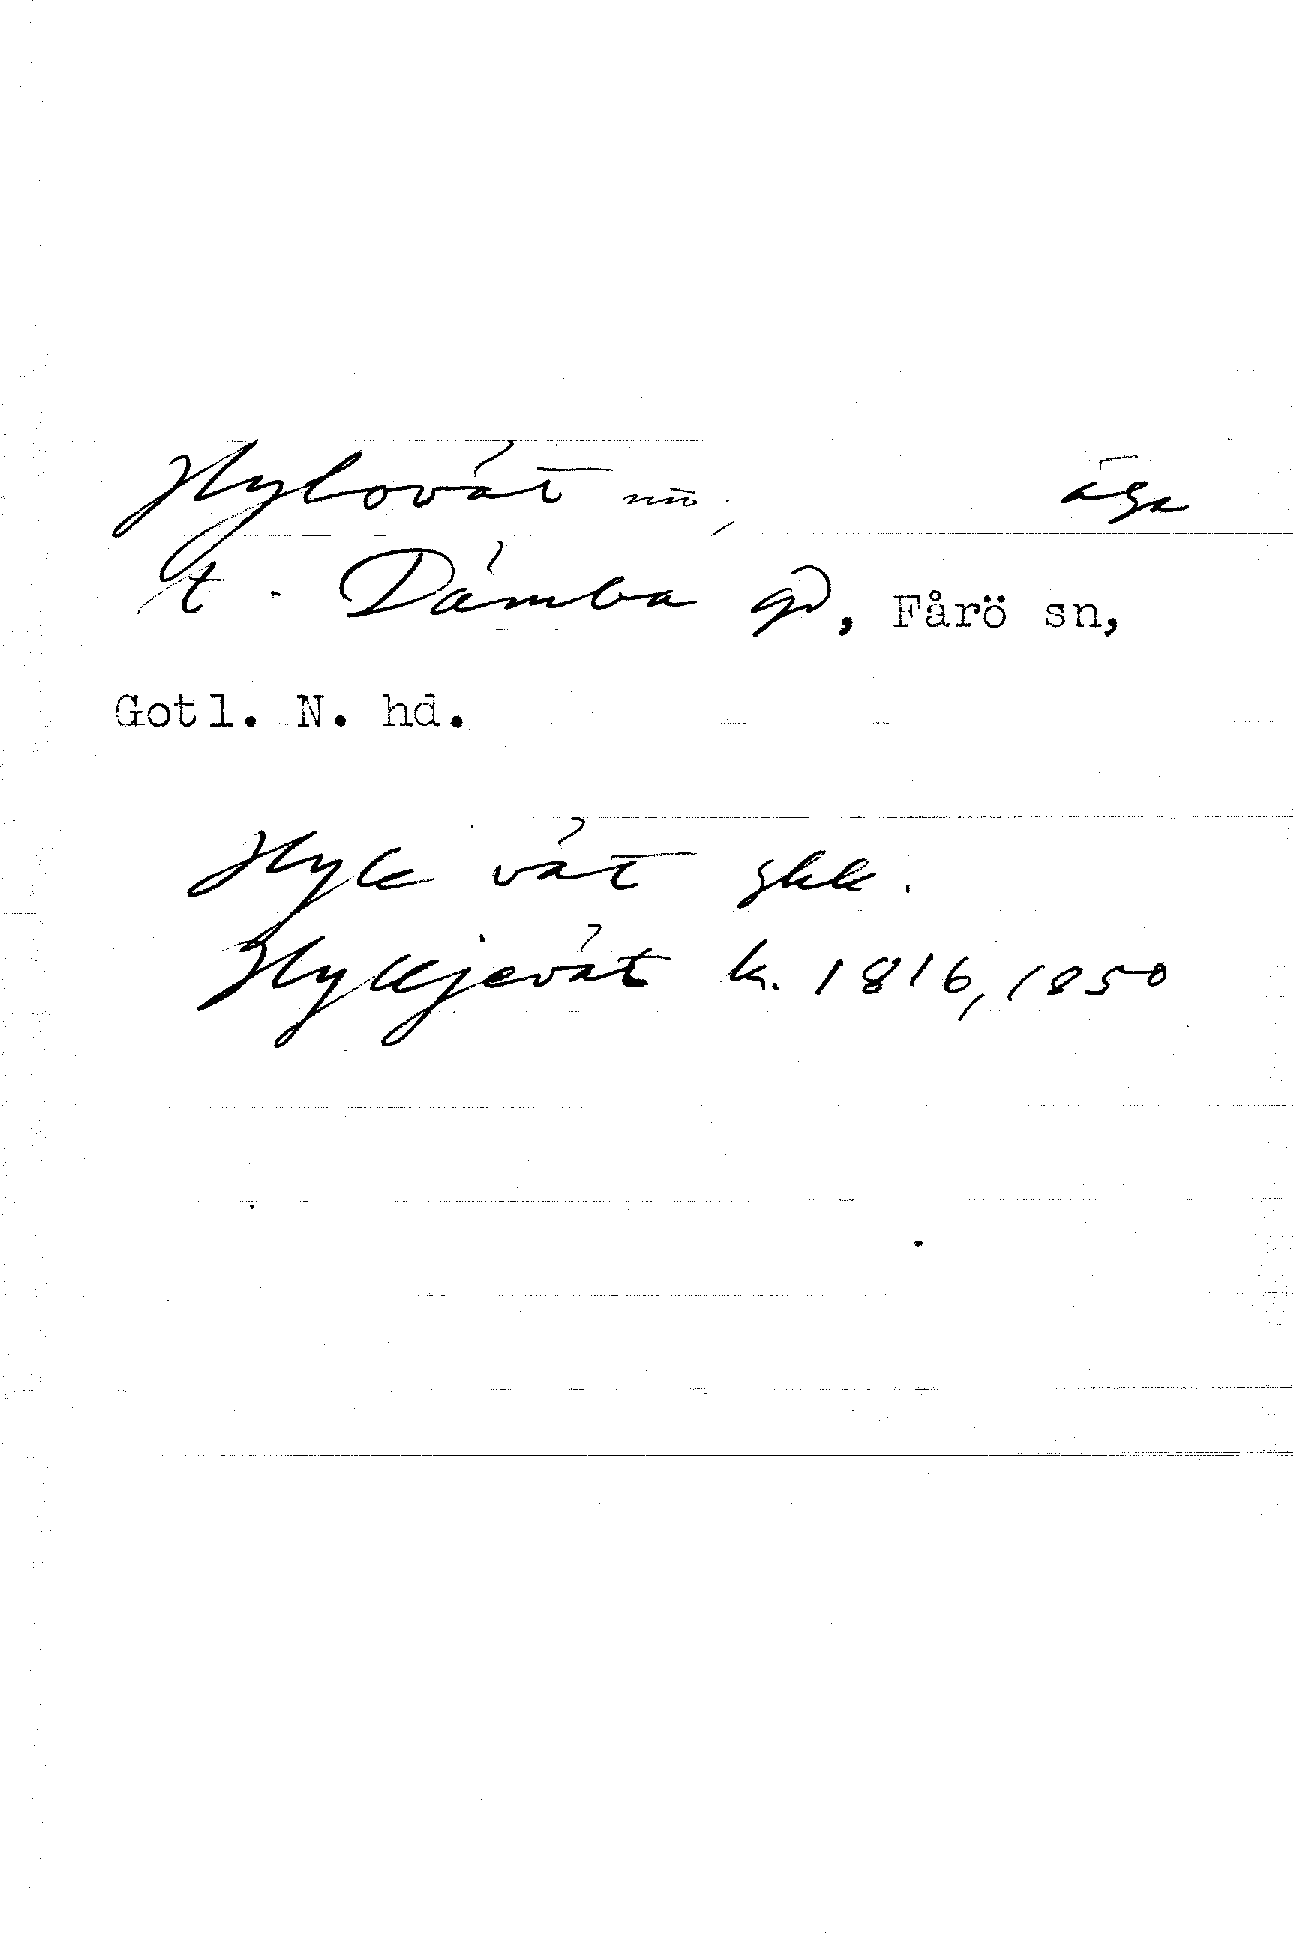 Hylovät
äga
t. Dämba gd, Fårö sn,
Gotl. N. hd.
Hyle vät skk.
Hylljevät k. 1816, 1850